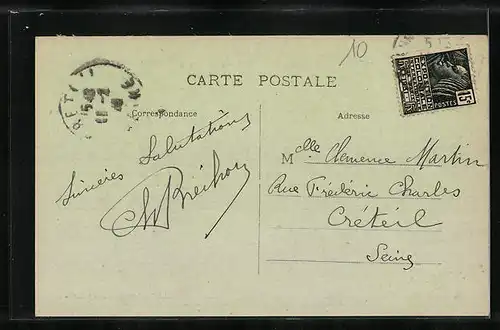 10
CARTE POSTALE
Correspondance
Adresse
15c
POSTES
Sincères Salutations
Mlle Clemence Martin
Rue Frédéric Charles
Créteil
Seine